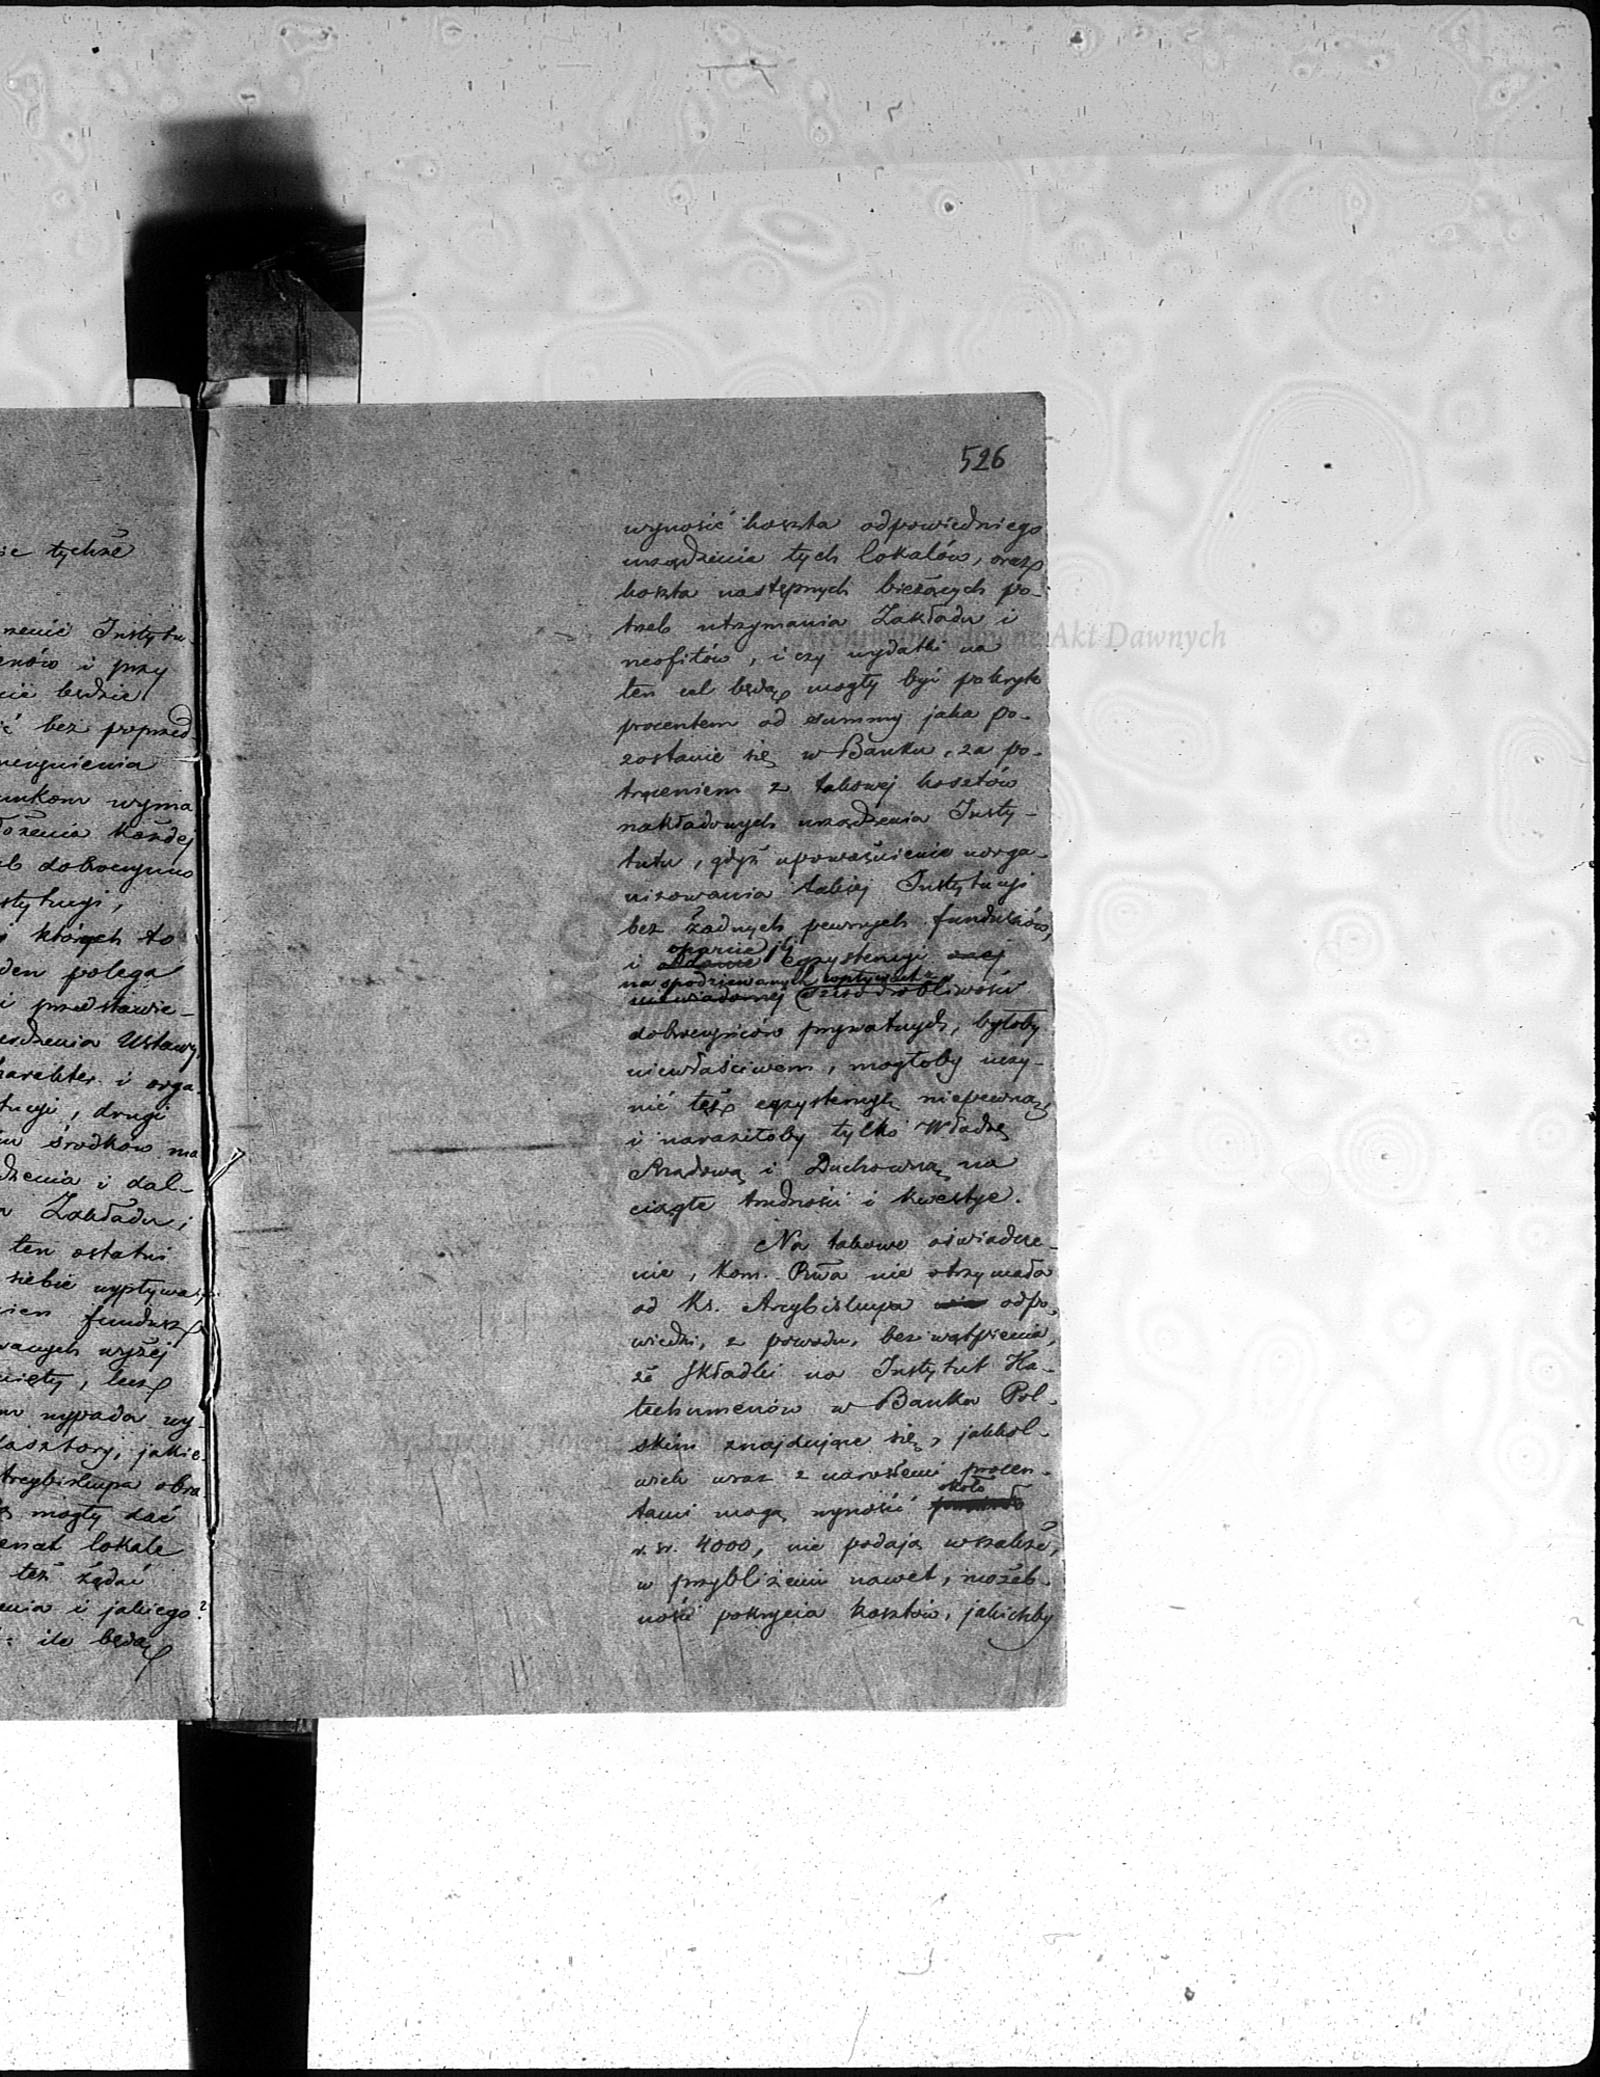 ie tychże
rzenie Instytu
enów i przy
cie będzie
ć bez poprzed
unkom wyma
ożenia każdej
b dobroczynno
stytucyi,
i których to
den polega
i przedstawie-
rdzenia Ustawy,
harakter i orga-
tucyi, drugi
iu środków na
dzenia i dal-
Zakładu;
ten ostatni
siebie wypływa
ien fundusz
wanych wyżej
nięty, lecz
wypada wy-
lasztory, jakie
Arcybiskupa obra
mogły dać
lokale
też żądać
enia i jakiego?
ile będą
526
wynosić koszta odpowiedniego
urządzenia tych lokalów, oraz
koszta następnych bieżących po-
trzeb utrzymania Zakładu i
neofitów, i czy wydatki na
ten cel będą mogły być pokryte
procentem od summy jaka po-
zostanie się w Banku, za po-
trąceniem z takowej kosztów
nakładowych urządzenia Insty-
tutu, gdyż upoważnienie uorga-
nizowania takiej Instytucyi
bez żadnych pewnych funduszów,
oparcie jéj
i egzystencyi onej
na spodziewanych wpływach z
niewiadomej szczodrobliwości
dobroczyńców prywatnych, byłoby
niewłaściwem, mogłoby uczy-
nić też egzystencyę niepewną,
i naraziłoby tylko Władzę
Rządową i Duchowną na
ciągłe trudności i kwestye.
Na takowe oświadcze-
nie, Kom. Rzwa nie otrzymała
od Ks. Arcybiskupa odpo-
wiedzi, z powodu, bez wątpienia,
że składki na Instytut Ka-
techumenów w Banku Pol-
skim znajdujące się, jakkol-
wiek wraz z narosłemi procen-
tami mogą wynosić około
r. sr. 4000, nie podają wszakże,
w przybliżeniu nawet, możeb-
ności pokrycia kosztów, jakichby
Archiwum Główne Akt Dawnych